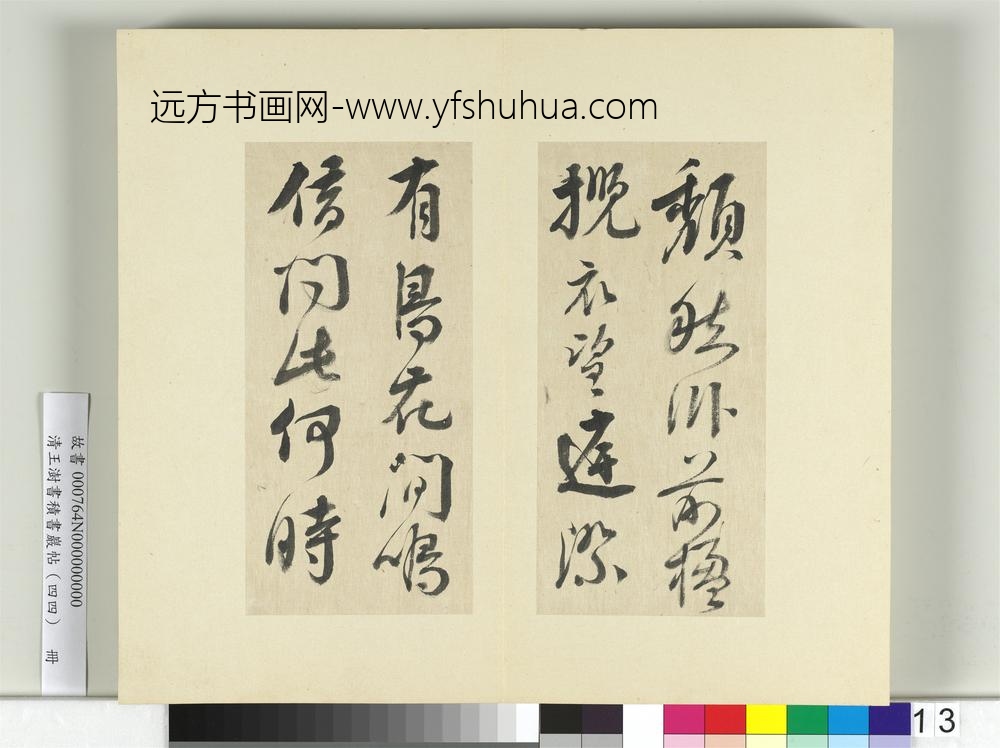 远方书画网-www.yfshuhua.com
頹然臥前楹
攬衣望庭際
有鳥花間鳴
借問此何時
故書 000764N000000000
清王澍書積書巖帖（四四） 冊
13